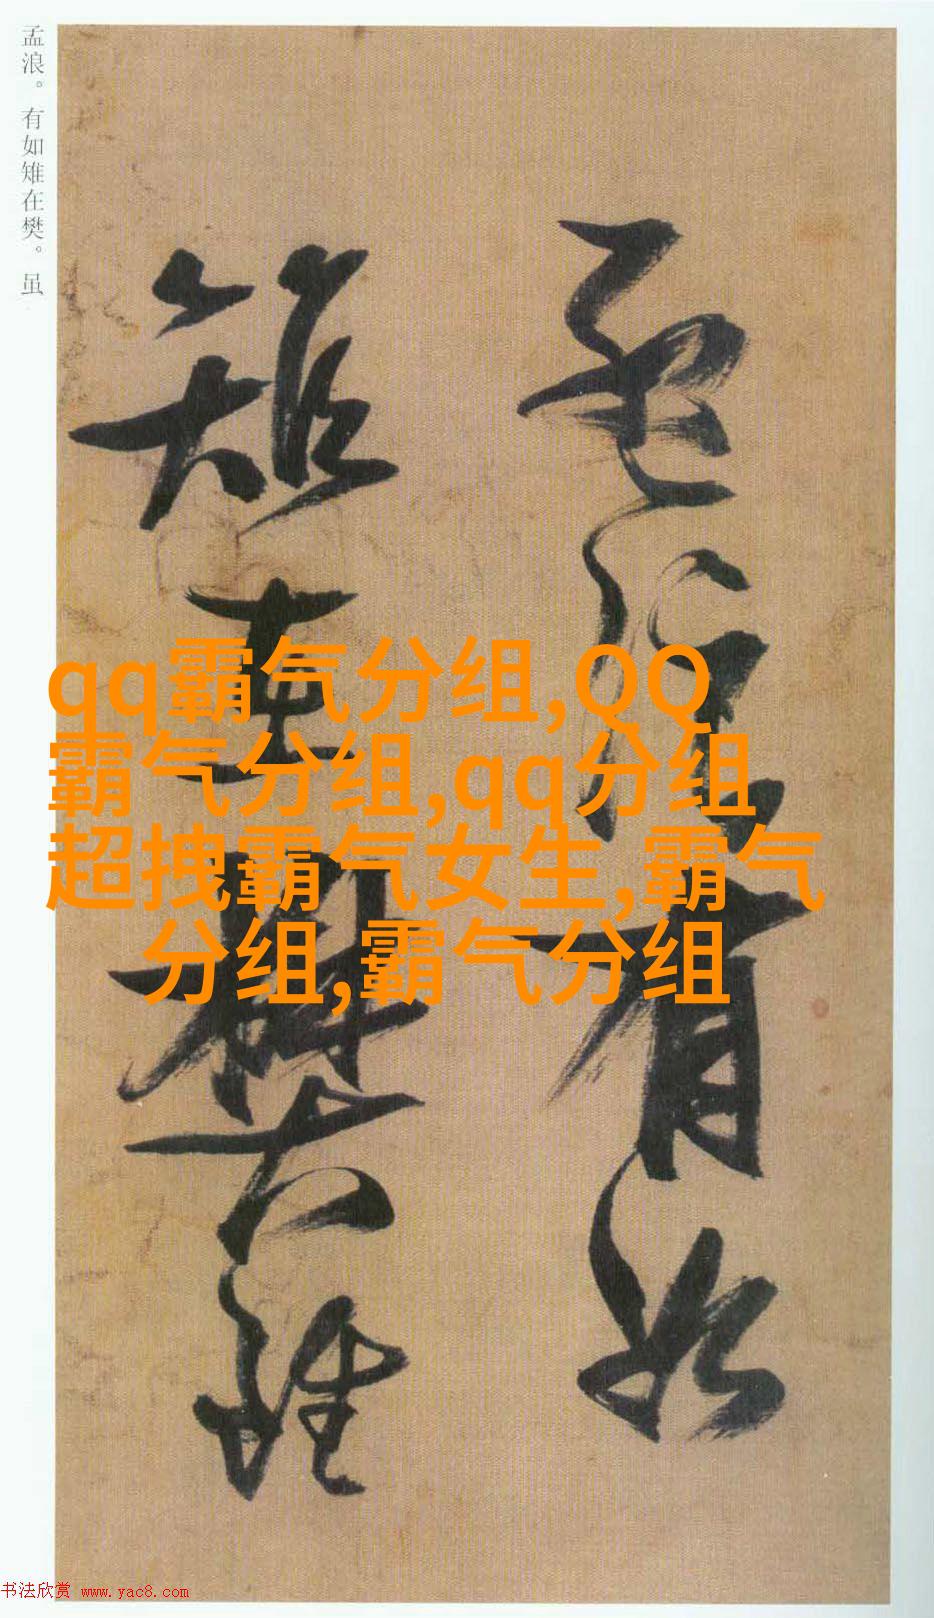 孟浪。有如雉在樊。虽
孟浪有如
雉在樊虽
qq霸气分组,QQ
霸气分组,qq分组
超拽霸气女生,霸气
分组,霸气分组
书法欣赏 www.yac8.com